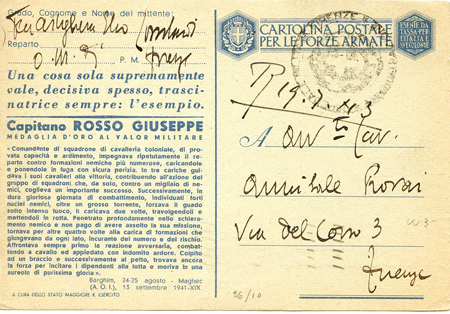 Grado, Cognome e Nome del mittente:
Reparto
O. M. P. M. Firenze
Una cosa sola supremamente
vale, decisiva spesso, trasci-
natrice sempre: l'esempio.
Capitano ROSSO GIUSEPPE
MEDAGLIA D'ORO AL VALOR MILITARE
«Comandante di squadrone di cavalleria coloniale, di pro-
vata capacità e ardimento, impegnava ripetutamente il re-
parto contro formazioni nemiche più numerose, caricandole
e ponendole in fuga con sicura perizia. In tre cariche gui-
dava i suoi cavalieri alla vittoria, contribuendo all'azione del
gruppo di squadroni che, da solo, contro un migliaio di ne-
mici, coglieva un importante successo. Successivamente, in
dura gloriosa giornata di combattimento, individuati forti
nuclei nemici, oltre un grosso torrente, forzava il guado
sotto intenso fuoco, li caricava due volte, travolgendoli e
mettendoli in rotta. Penetrato profondamente nello schiera-
mento nemico e non pago di avere assolto la sua missione,
tornava per altre quattro volte alla carica di formazioni che
giungevano da ogni lato, incurante del numero e del rischio.
Affrontava sempre primo la reazione avversaria, combat-
tendo a cavallo ed appiedato con indomito ardore. Colpito
ad un braccio e successivamente al petto, trovava ancora
la forza per incitare i dipendenti alla lotta e moriva in una
aureola di purissima gloria».
Berghim, 24-25 agosto - Maghec
(A. O. I.), 13 settembre 1941-XIX.
A CURA DELLO STATO MAGGIORE R. ESERCITO
CARTOLINA POSTALE
PER LE FORZE ARMATE
ESENTE DA
TASSA PER
L'ITALIA E
LE COLONIE
FIRENZE
R 19.7.43
A
Cav.
Annibale Rossi
Via del Corso 3
Firenze
W 3-
36/10